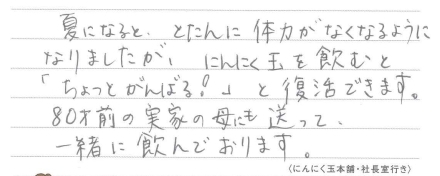 夏になると、とたんに体力がなくなるように
なりましたが、にんにく玉を飲むと
「ちょっとがんばる！」と復活できます。
80才前の実家の母にも送って、
一緒に飲んでおります。
（にんにく玉本舗・社長室行き）